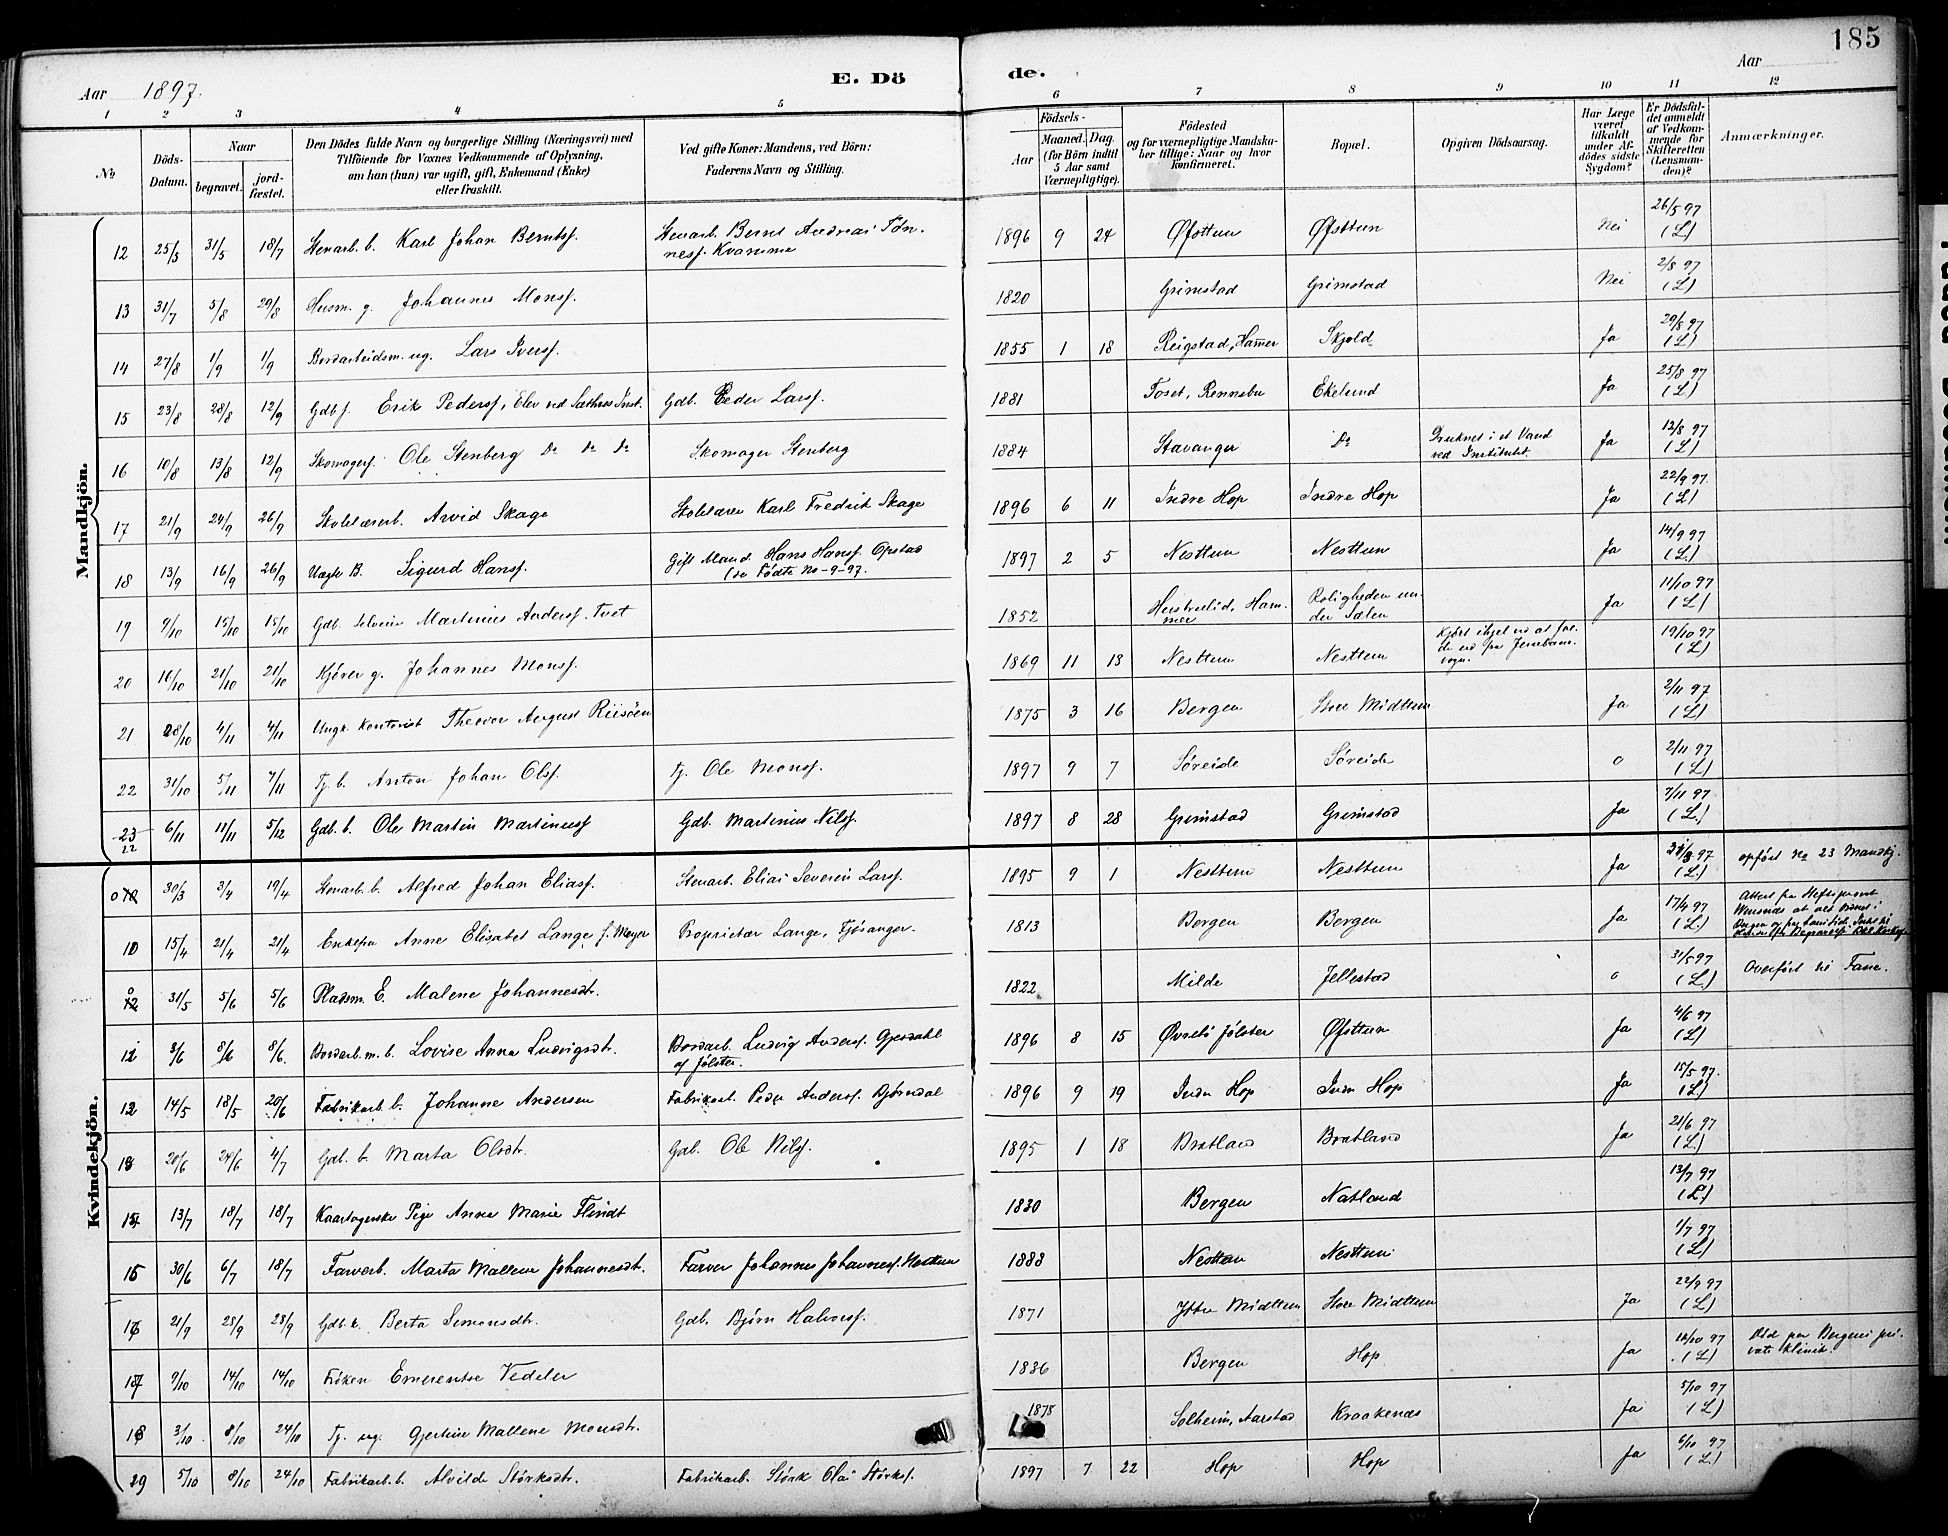 185
Aar 1897.
E. Dö
de.
Aar
1 2 3 4 5
6 7 8 9 10 11 12
No
Döds-Datum.
Naar
begravet.
jord-fæstet.
Den Dödes fulde Navn og borgerlige Stilling (Næringsvei) med
Tilföiende for Voxnes Vedkommende af Oplysning,
om han (hun) var ugift, gift, Enkemand (Enke)
eller fraskilt.
Ved gifte Koner: Mandens, ved Börn:
Faderens Navn og Stilling.
Födsels-
Aar
Maaned. Dag.
(for Börn indtil
5 Aar samt
Værnepligtige).
Födested
og for værnepligtige Mandska-
ber tillige: Naar og hvor
konfirmeret.
Bopæl.
Opgiven Dödsaarsag.
Har Læge
været
tilkaldt
under Af-
dödes sidste
Sygdom?
Er Dödsfal-
det anmeldt
af Vedkom-
mende for
Skifteretten
(Lensman-
den)?
Anmærkninger.
Mandkjön.
12 25/5 31/5 18/7 Stenarb. b. Karl Johan Berntsf. Stenarb. Bernt Andreas Tön-
nesf. Kvamme 1896 9 24 Øfsttun Øfsttun Nei 26/5 97 (L)
13 31/7 5/8 29/8 Husm. g. Johannes Monsf. 1820 Grimstad Grimstad Nei 2/8 97 (L)
14 27/8 1/9 1/9 Bordarbeidsm. ug. Lars Iversf. 1855 1 18 Reigstad, Hamer Skjold Ja 29/8 97 (L)
15 23/8 28/8 12/9 Gdb f. Erik Pedersf, Elev ved Sæthres Inst. Gdb. Peder Larsf. 1881 Foset, Rennebu Ekelund Ja 25/8 97 (L)
16 10/8 13/8 12/9 Skomagerf. Ole Stenberg Do Do Do Skomager Stenberg 1884 Stavanger Do Druknet i et Vand
ved Institutet. Ja 12/8 97 (L)
17 21/9 24/9 26/9 Skolelærerb. Arvid Skage Skolelærer Karl Fredrik Skage 1896 6 11 Indre Hop Indre Hop Ja 22/9 97. (L)
18 13/9 16/9 26/9 Uægte B. Sigurd Hansf. Gift Mand Hans Hansf. Opstad
(se Födte No-9-97. 1897 2 5 Nesttun Nesttun Ja 14/9 97 (L.)
19 9/10 15/10 15/10 Gdb. Selveier Martinius Andersf. Tvet 1852 Herstvedlid, Ham-
mer Roligheden un-
der Sælen Ja 11/10 97 (L)
20 16/10 21/10 21/10 Kjörer g. Johannes Monsf. 1869 11 13 Nesttun Nesttun Kjört ihjel ved at fal-
de ned fra Jernbane-
vogn. 19/10 97 (L)
21 28/10 4/11 4/11 Ungk. Kontorist Theodor August Riisöen 1875 3 16 Bergen Store Midttun Ja 2/11 97 (L)
22 31/10 5/11 7/11 Tj. b. Anton Johan Olsf. Tj. Ole Monsf. 1897 9 7 Söreide Söreide o 2/11 97 (L)
23
22 6/11 11/11 5/12 Gdb. b. Ole Martin Martinusf Gdb. Martinius Nilsf. 1897 8 28 Grimstad Grimstad Ja 7/11 97. (L.)
Kvindekjön.
0 10 30/3 3/4 19/4 Stenarb. b. Alfred Johan Eliasf. Stenarb. Elias Severin Larsf. 1895 9 1 Nesttun Nesttun Ja 31/3 97 (L.) opfört No 23 Mandkj.
10 15/4 21/4 21/4 Enkefru Anne Elisabet Lange f. Meyer Proprietær Lange, Fjösanger. 1813 Bergen Bergen Ja 17/4 97 (L.) Attest fra
0 12 31/5 5/6 5/6 Pladsm. E. Malene Johannesdt. 1822 Milde Jellestad o 31/5 97 (L.) Overfört til Fane.
11 3/6 8/6 8/6 Bordarb. m. b. Lovise Anna Ludvigsdt. Bordarb. Ludvig Andersf. Gjesdahl
af Jölster. 1896 8 15 Øvrebö Jölster Øfsttun Ja 4/6 97 (L)
12 14/5 18/5 20/6 Fabrikarb. b. Johanne Andersen Fabrikarb. Peder Andersf. Björndal 1896 9 19 Indr Hop Indr Hop Ja 15/5 97. (L.)
13 20/6 24/6 4/7 Gdb. b. Marta Olsdt. Gdb. Ole Nilsf. 1895 1 18 Bratland Bratland Ja 21/6 97 (L.)
14 13/7 18/7 18/7 Pige Anna Marie Flindt 1830 Bergen Natland 13/7 97 (L)
15 30/6 6/7 18/7 Farverb. Marta Mallene Johannesdt. Farver Johannes Johannesf. Nesttun 1888 Nesttun Nesttun 1/7 97 (L)
16 21/9 28/9 28/9 Gdb. k. Berta Simonsdt. Gdb. Björn Halvorsf. 1871 Ytre Midttun Store Midttun Ja 22/9 97 (L)
17 9/10 14/10 14/10 Fröken Emerentse Vedeler 1836 Bergen Hop Ja 12/10 97 (L) Död paa Bergens pri-
vate Klinik.
18 3/10 8/10 24/10 Tj. ug. Gjertine Mallene Monsdt. 1878 Solheim, Aarstad Kraakenæs Ja 5/10 97 (L)
29 5/10 8/10 24/10 Fabrikarb. b. Alvilde Störksdt. Fabrikarb. Störk Olai Störksf. 1897 7 22 Hop Hop Ja 6/10 97 (L.)